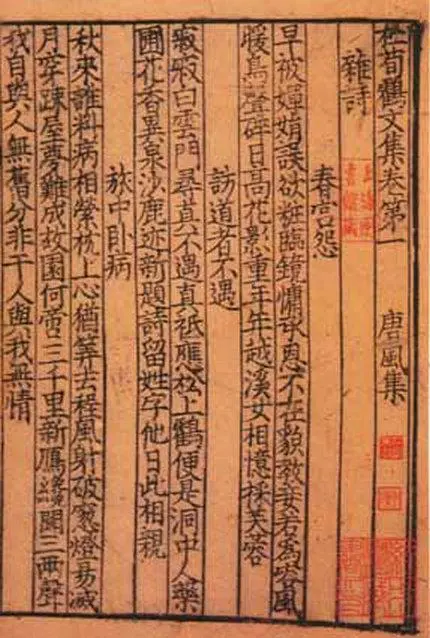 杜荀鶴文集卷第一　唐風集
雜詩
春宮怨
早被嬋娟誤欲粧臨鏡慵承恩不在貌教妾若為容風
暖鳥聲碎日高花影重年年越溪女相憶採芙蓉
訪道者不遇
寂寂白雲門尋真不遇真祇應松上鶴便是洞中人藥
圃花香異泉沙鹿迹新題詩留姓字他日此相親
旅中臥病
秋來誰料病相縈枕上心猶筭去程風射破窻燈易滅
月穿踈屋夢難成故園何啻三千里新鴈纔聞三兩聲
我自與人無舊分非干人與我無情